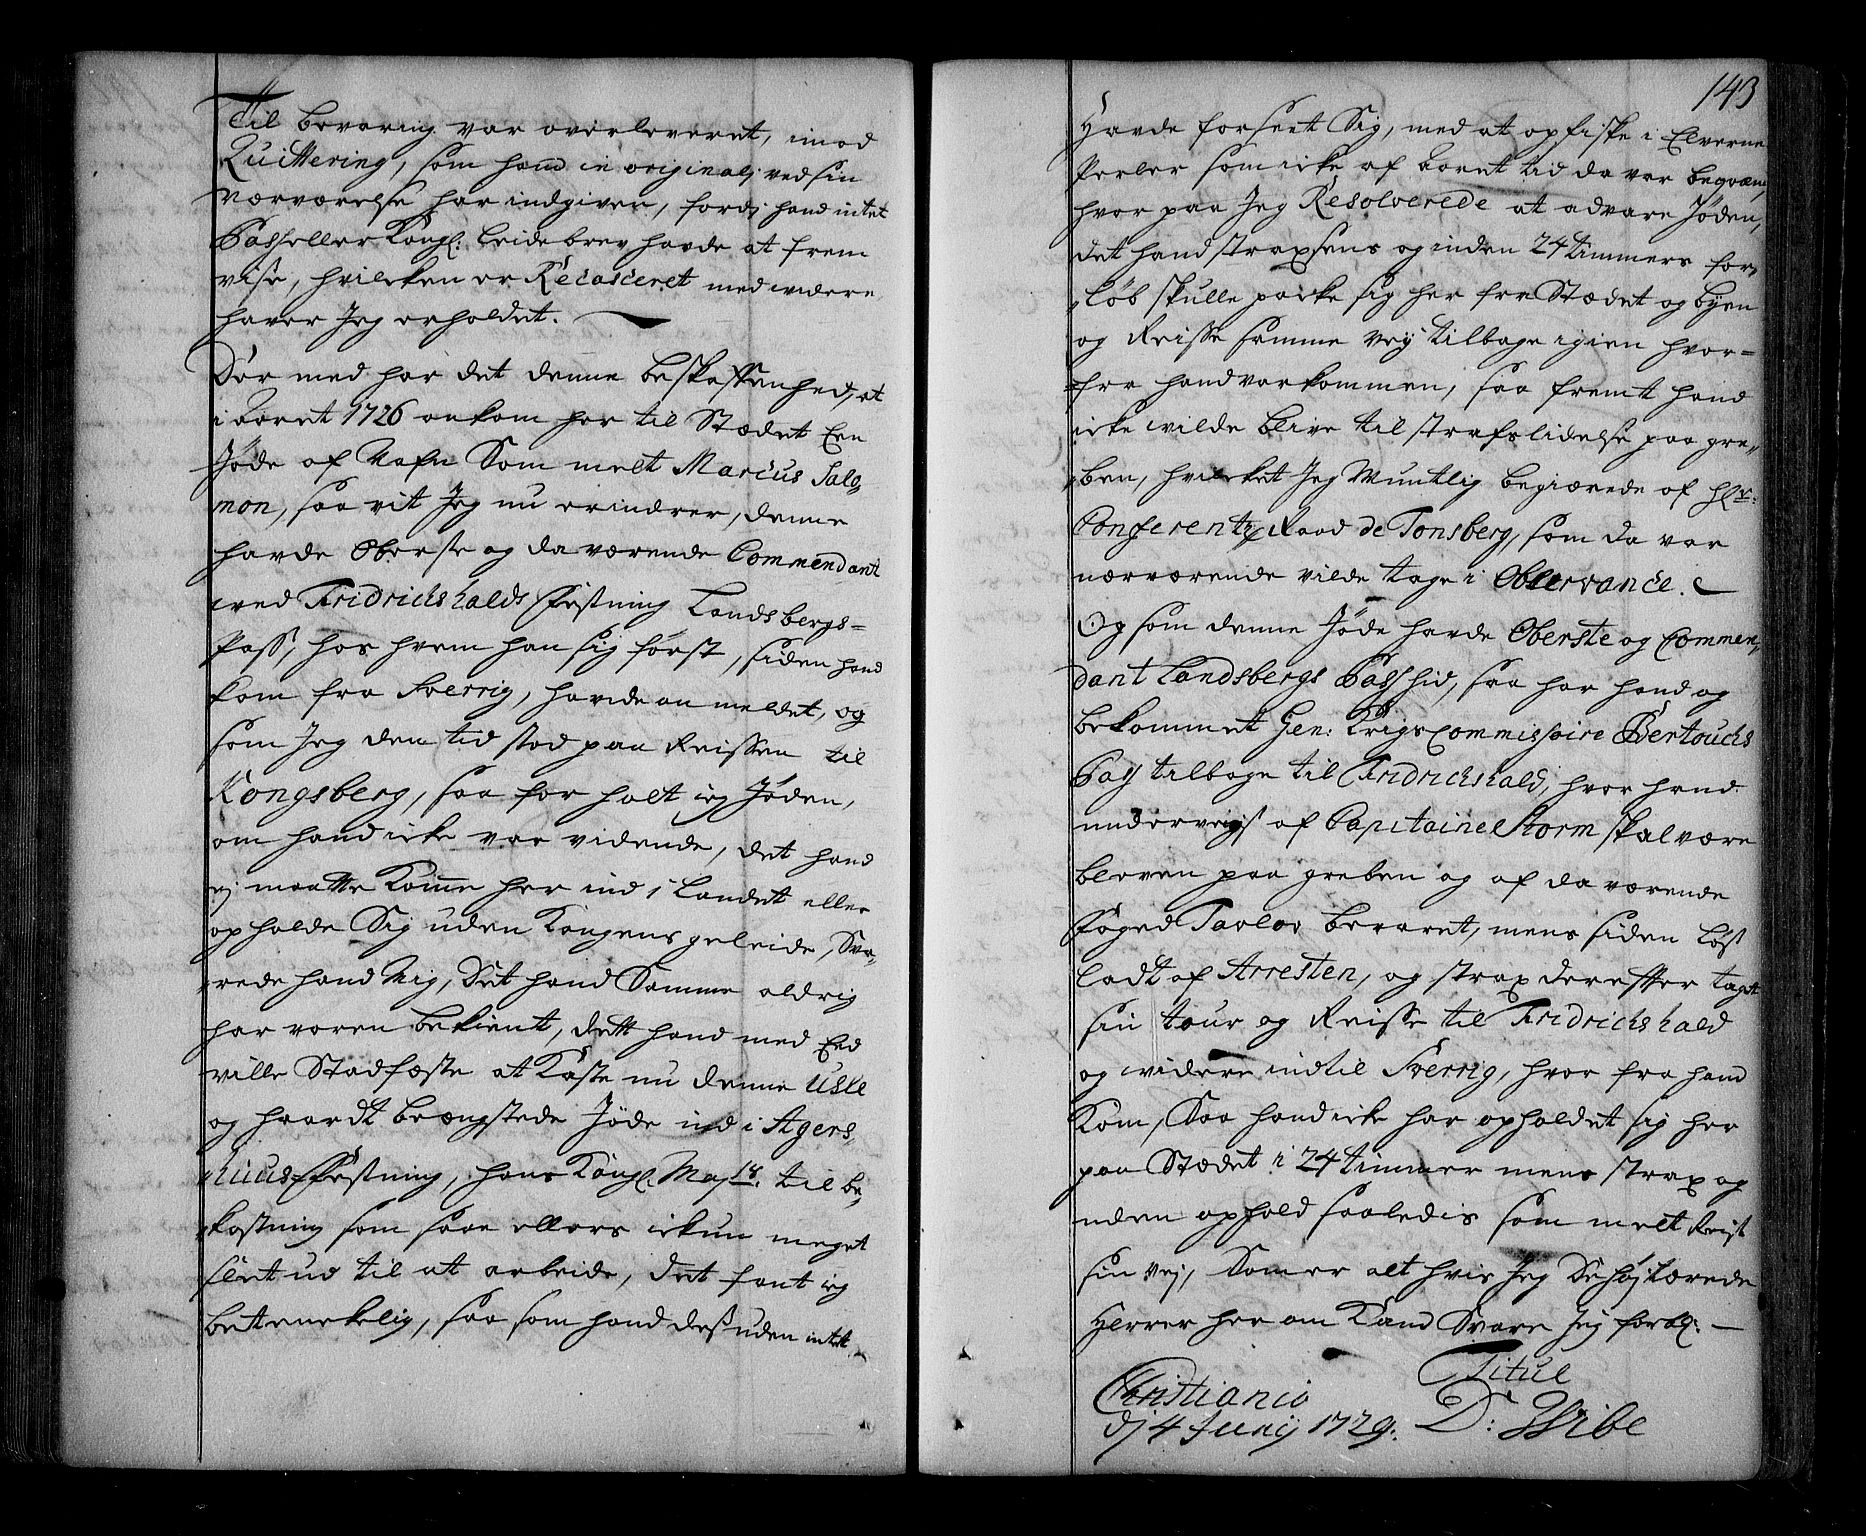 Til bevaring var overleveret, imod
Quittering, som hand in originali ved sin
Nærværelse har indgiven, fordj hand intet
Pass eller Kongl: leidebrev havde at frem
vise, hvilcken er Recasceret med widere
haver Jeg erholdet.
Der med har det denne beskaffenhed, at
i aaret 1726 ankom her til Stædet Een
Jøde af Nafn Som melt Marcus Salo-
mon, saa vit Jeg nu erindrer, denne
havde Oberste og da værende Commendant
wed Fridrichshalds Festning Landsbergs-
Pass, hos hvem han sig først, siden hand
kom fra Sverrig, havde an meldet, og
som Jeg den tid stod paa Reissen til
Kongsberg, saa for holt ieg Jøden,
om hand icke var vidende, det hand
ej maatte Komme her ind i Landet eller
op holde Sig uden Kongens geleide, Sva-
rede hand Mig, Det hand Samme aldrig
har været bekient, dett hand med Eed
ville Stadfæste at Kaste nu denne Usle
og haardt beængstede Jøde ind i Agers-
huus Festning, hans Kongl. Mayts. til be-
kostning som saae ellers ickun meget
slet ud til at arbeide, det fant ieg
betenckelig, saa som hand dessuden intet
143
Havde forseet Sig, med at opfiske i Elverne
Perler som icke af aaret tid da var beqvæm,
hvor paa Jeg Resolverede at advare Jøden,
det hand straxsens og inden 24 timmers for-
løb skulle packe sig her fra Stædet og byen
og Reisse samme vey tilbage igien hvor-
fra hand var kommen, saa fremt hand
icke wilde blive til strafs lidelse paa gre-
ben, hvilcket Jeg Muntlig begiærede af Hr:
Conferentz Raad de Tonsberg, som da var
nærværende vilde tage i Observance.
Og som denne Jøde havde Oberste og Commen-
dant Landsbergs Pass hid, saa har hand og
bekommet Gen: Krigs Commissaire Bertouchs
Pass tilbage til Fridrichshald, hvor hand
undervejs af Capitaine Storm skal være
bleven paa greben og af da værende
Foged Taulov bevaret, mens siden løst
ladt af Arresten, og strax dereffter taget
sin tour og Reisse til Fridrichshald
og widere ind til Sverrig, hvor fra hand
Kom, Saa hand icke har opholdet sig her
paa Stædet i 24 timmer mens strax og
uden ophold saaledis som melt Reist
sin vej, Som er alt hvis Jeg De højlærede
Herrer her om Kand Svare Jeg forbl:
Titul
Christiania
dj 4 Junij 1729. D: Wibe